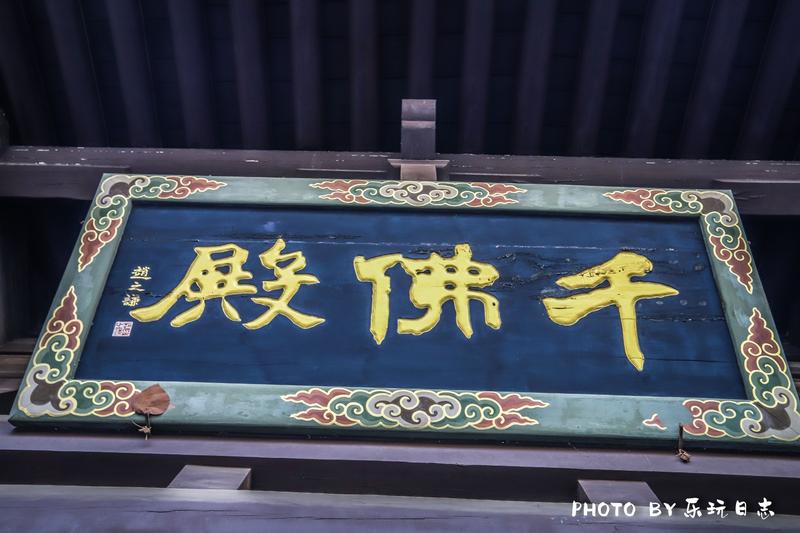 千佛殿
趙之謙
PHOTO BY乐玩日志